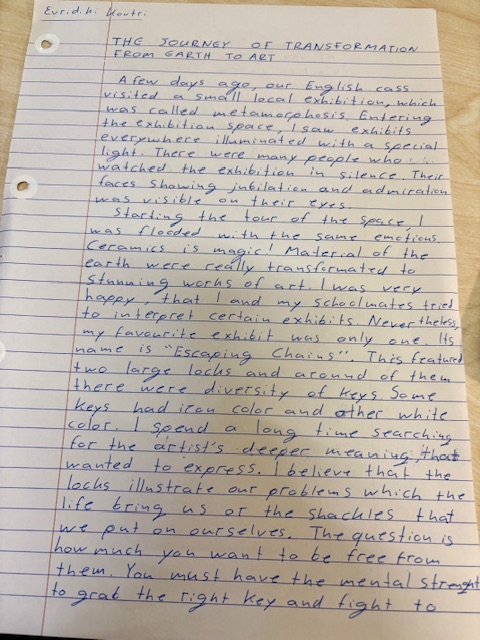 Euridiki Koutri
THE JOURNEY OF TRANSFORMATION
FROM EARTH TO ART
A few days ago, our English cass
visited a small local exhibition, which
was called metamorphosis. Entering
the exhibition space, I saw exhibits
everywhere illuminated with a special
light. There were many people who
watched the exhibition in silence. Their
faces showing jubilation and admiration
was visible on their eyes.
Starting the tour of the space, I
was flooded with the same emotions.
Ceramics is magic! Material of the
earth were really transformated to
stunning works of art. I was very
happy, that I and my schoolmates tried
to interpret certain exhibits. Nevertheless,
my favourite exhibit was only one. Its
name is "Escaping Chains". This featured
two large locks and around of them
there were diversity of keys. Some
keys had iron color and other white
color. I spend a long time searching
for the artist's deeper meaning, that
wanted to express. I believe that the
locks illustrate our problems which the
life bring us or the shackles that
we put on ourselves. The question is
how much you want to be free from
them. You must have the mental strenght
to grab the right key and fight to